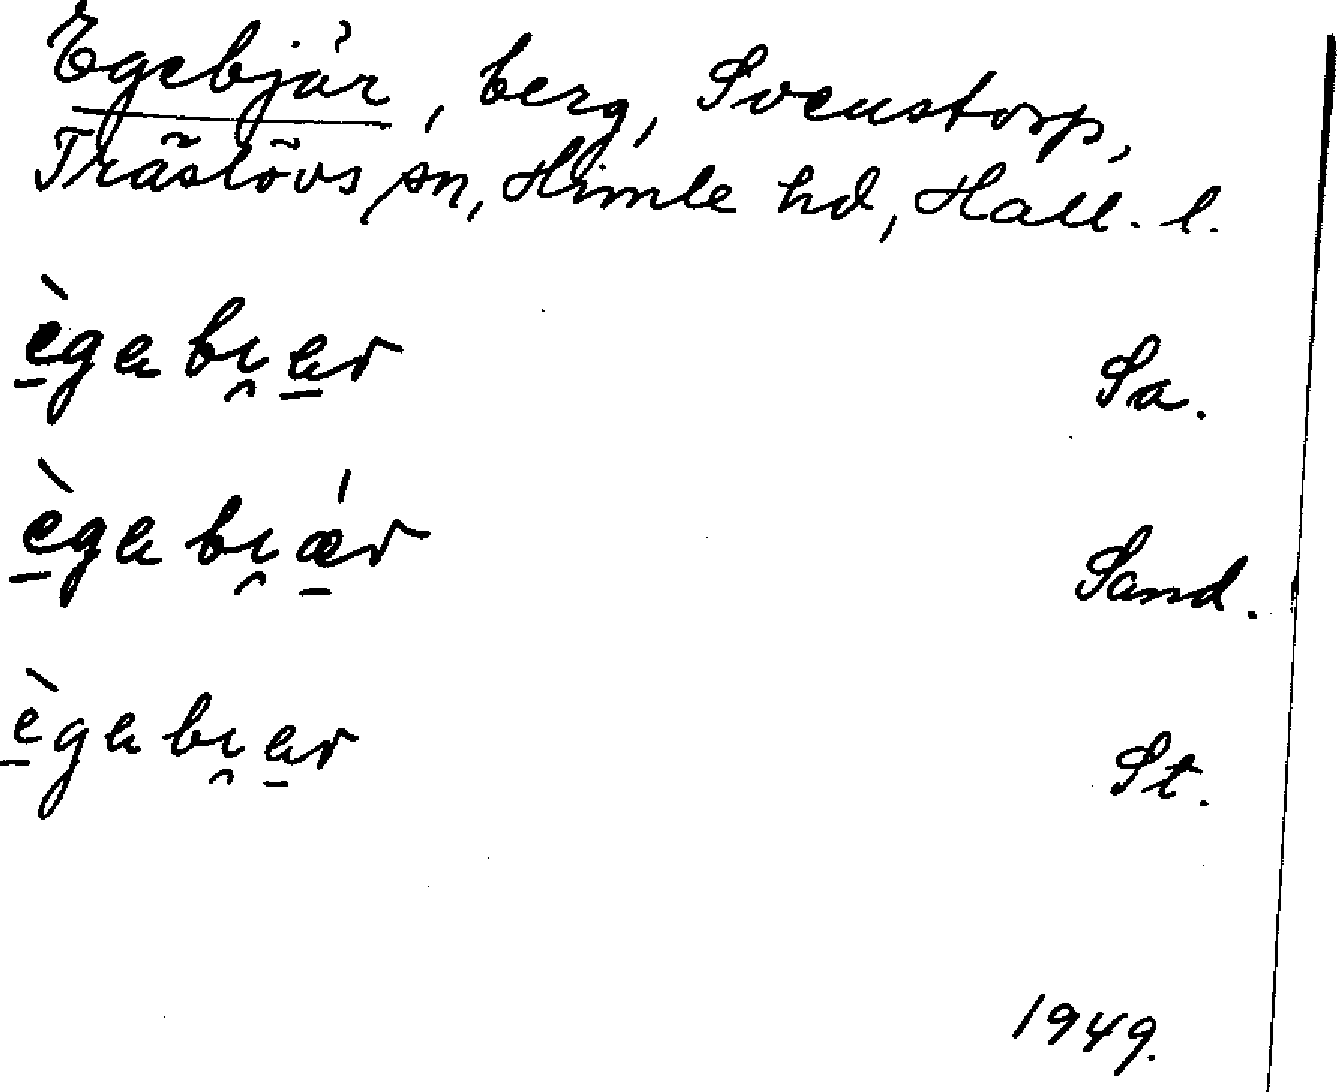 Egebjär, berg, Svenstorp,
Träslövs sn, Himle hd, Hall. l.
ègabi̯ar Sa.
ègabi̯ǽr Sand.
ègabi̯ar St.
1949.